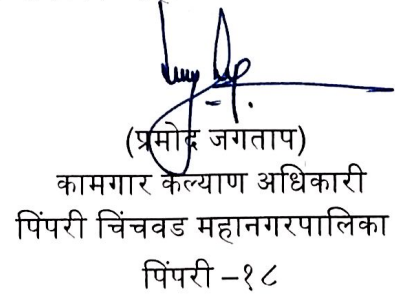 (प्रमोद जगताप)
कामगार कल्याण अधिकारी
पिंपरी चिंचवड महानगरपालिका
पिंपरी –१८